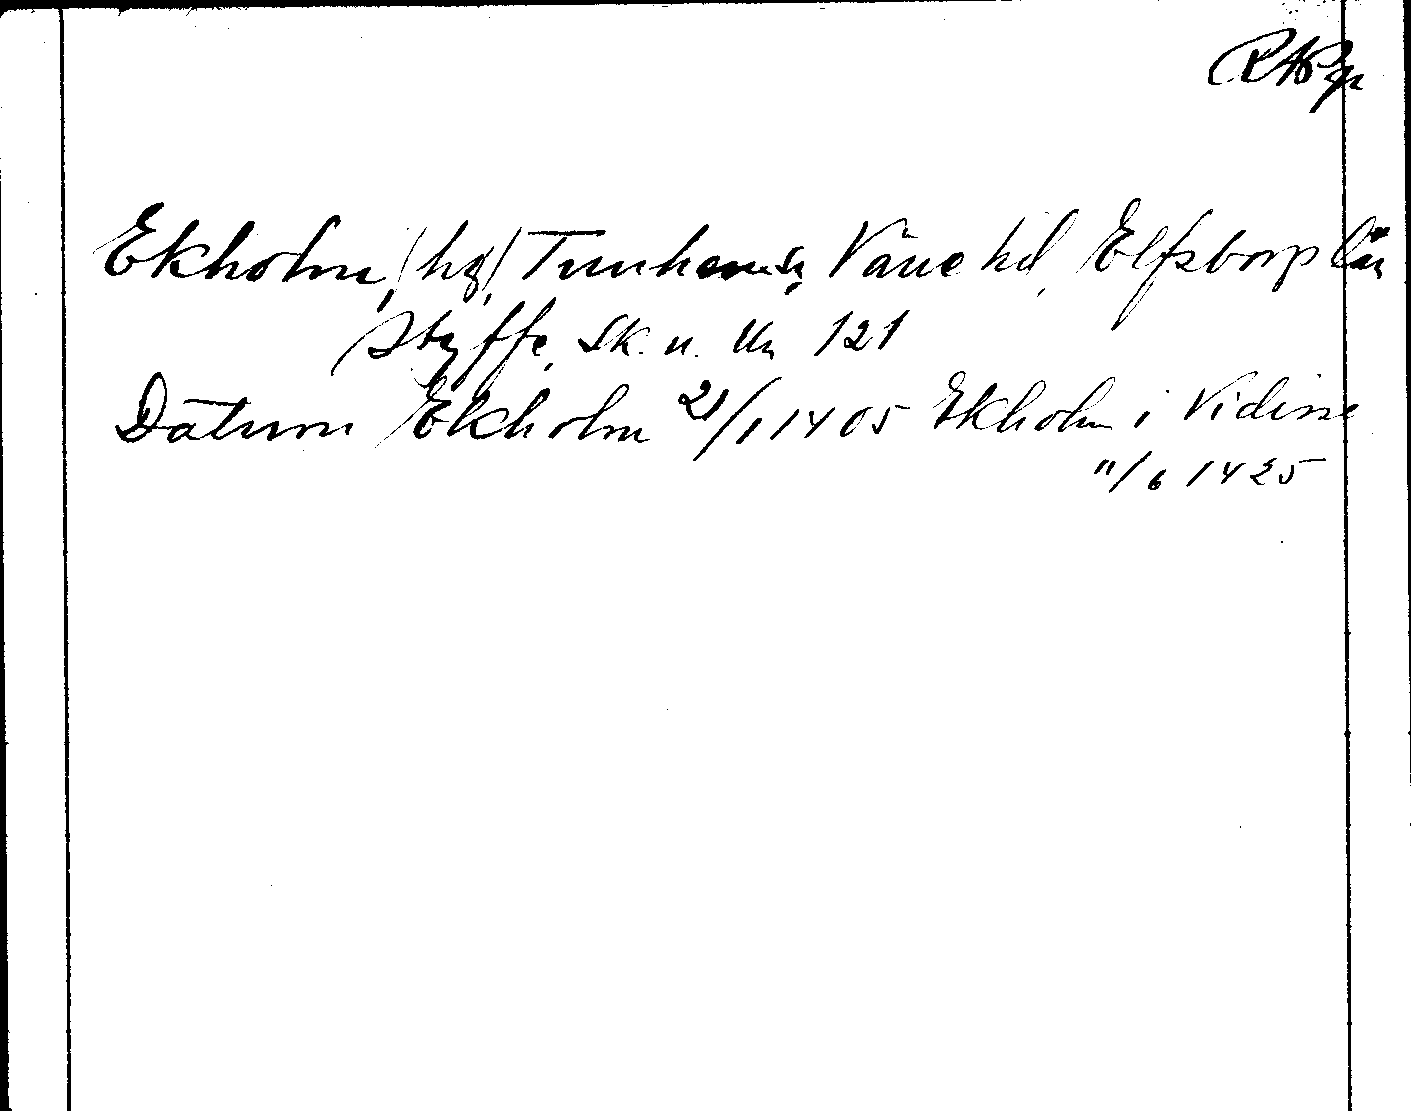 RAp
Ekholm, (hg) Tunhems sn, Väne hd, Elfsborgs län
Styffe, Sk. u. Un 121
Datum Ekholm 21/1 1405 Ekholm i Vidisse
11/6 1425